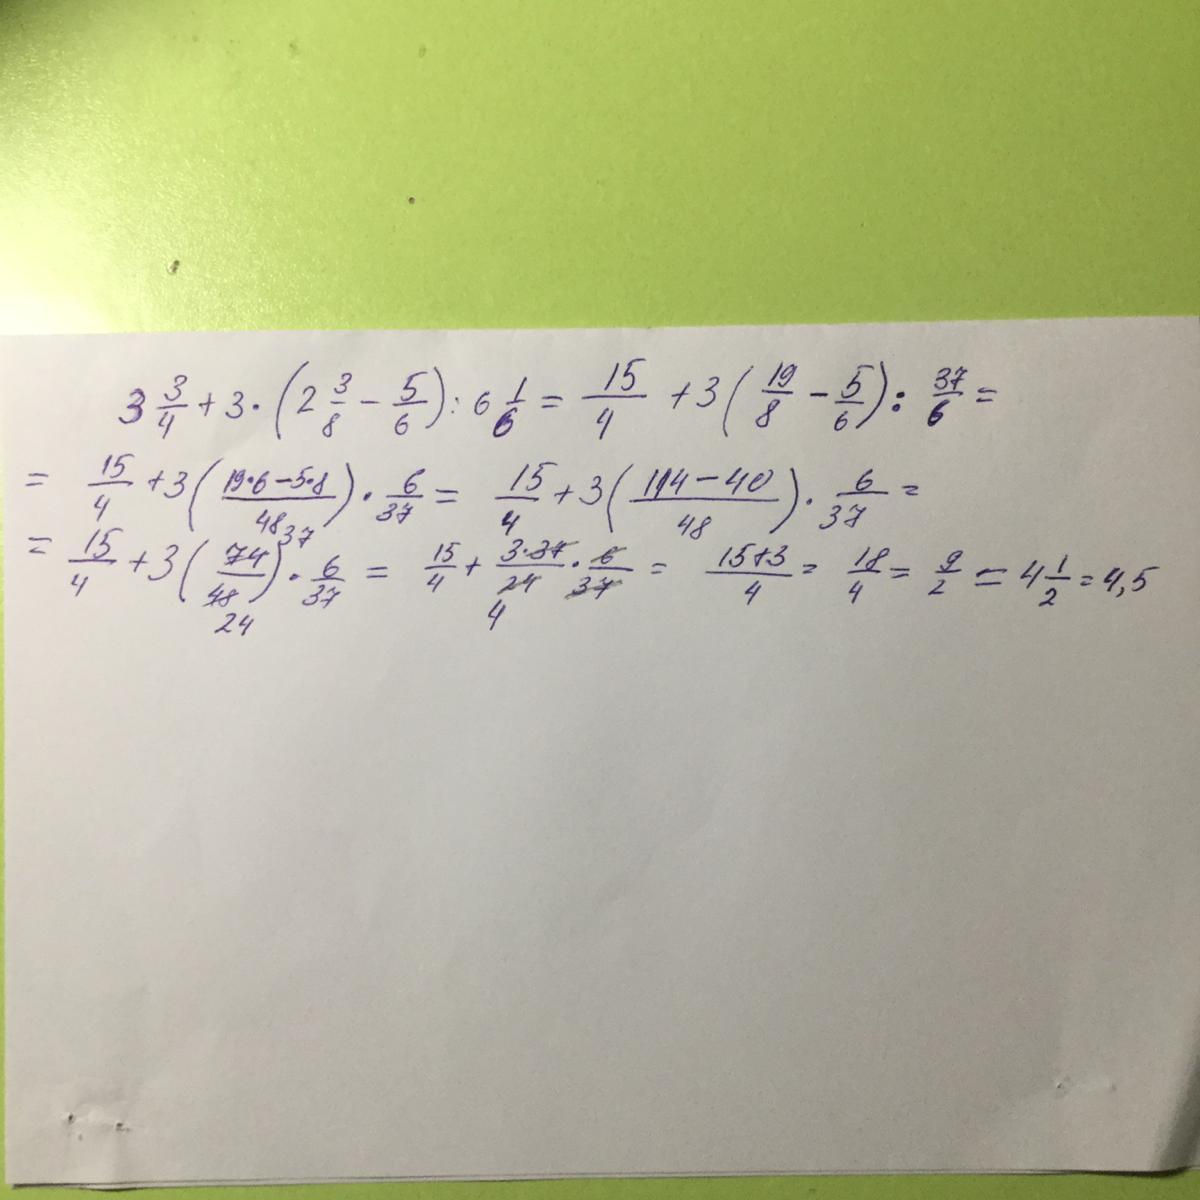 3 3/4 + 3 · (2 3/8 − 5/6) : 6 1/6 = 15/4 + 3 (19/8 − 5/6) : 37/6 =
= 15/4 + 3 (19·6−5·8/48) · 6/37 = 15/4 + 3 (114−40/48) · 6/37 =
= 15/4 + 3 (74/48 37/24) · 6/37 = 15/4 + 3·37/24 4 · 6/37 = 15+3/4 = 18/4 = 9/2 = 4 1/2 = 4,5